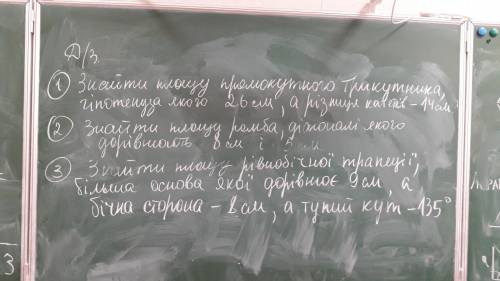 Д/з.
① Знайти площу прямокутного трикутника,
гіпотенуза якого 26см, а різниця катетів - 14см.
② Знайти площу ромба, діагоналі якого
дорівнюють 8см і 5см
③ Знайти площу рівнобічної трапеції,
більша основа якої дорівнює 9см, а
бічна сторона - 8см, а тупий кут - 135°
3